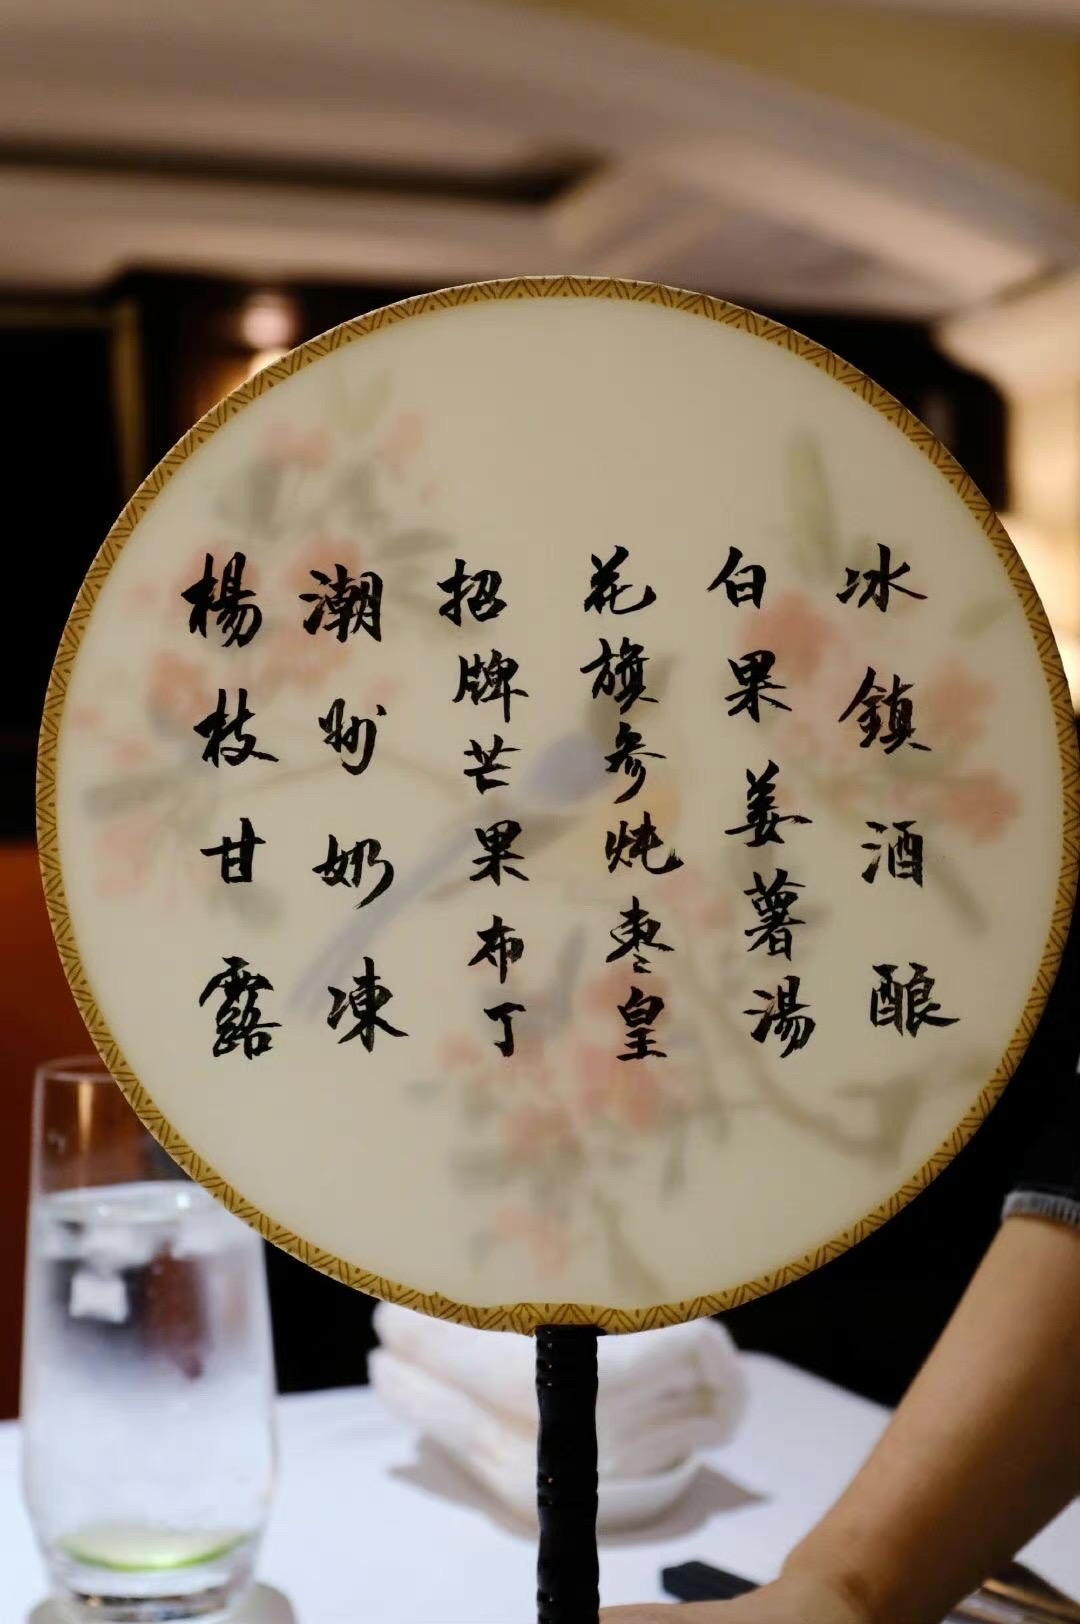 冰鎮酒酿
白果姜薯湯
花旗参炖枣皇
招牌芒果布丁
潮州奶凍
楊枝甘露